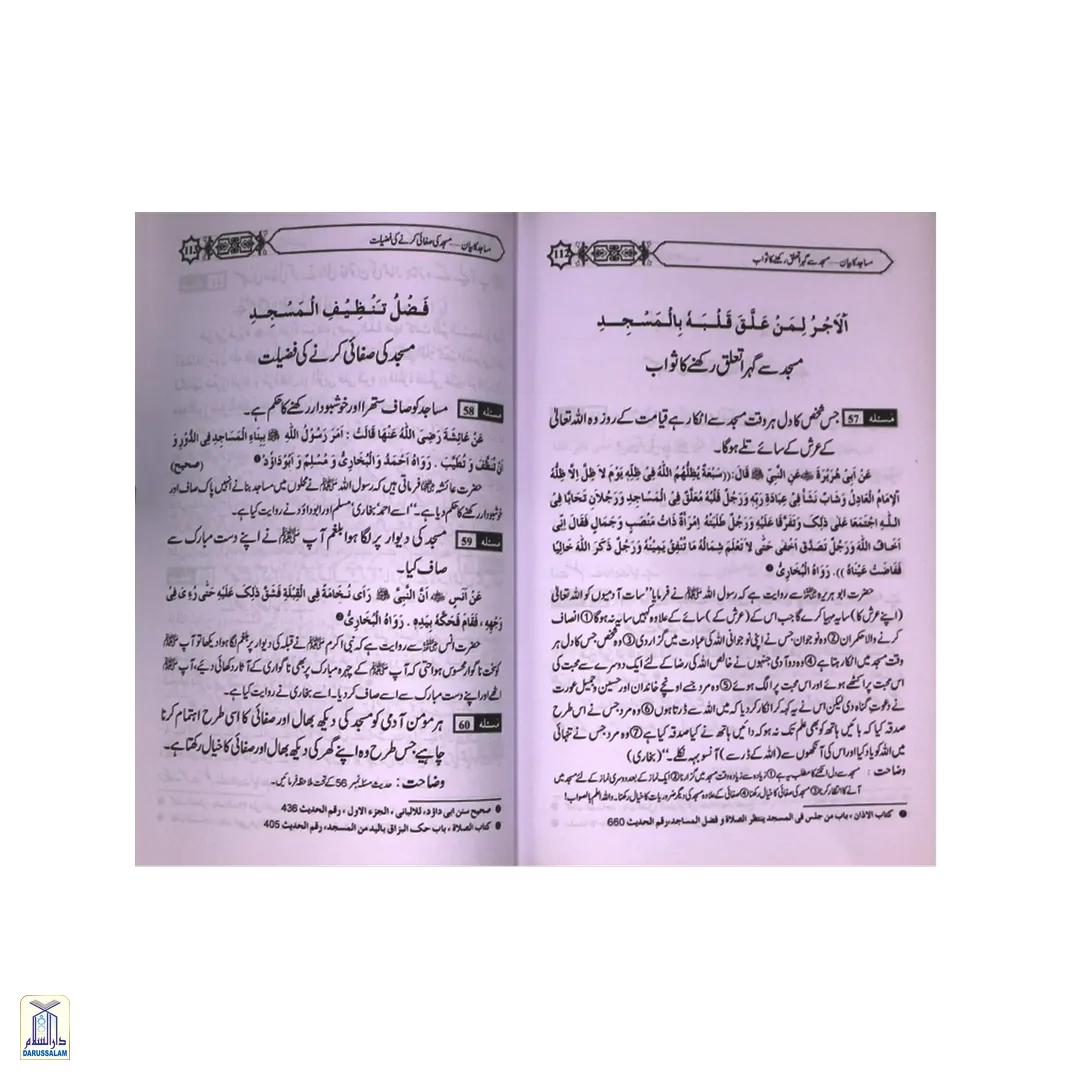 112
مساجد کا بیان.... مسجد سے گہرا تعلق رکھنے کا ثواب
اَلْاَجْرُ لِمَنْ عَلَّقَ قَلْبَهُ بِالْمَسْجِدِ
مسجد سے گہرا تعلق رکھنے کا ثواب
مسئلہ 57 جس شخص کا دل ہر وقت مسجد سے اٹکا رہے قیامت کے روز وہ اللہ تعالیٰ
کے عرش کے سائے تلے ہوگا۔
عَنْ اَبِیْ هُرَیْرَةَ ﷺ عَنِ النَّبِیِّ ﷺ قَالَ: ((سَبْعَةٌ یُظِلُّهُمُ اللّٰهُ فِیْ ظِلِّهٖ یَوْمَ لاَ ظِلَّ اِلَّا ظِلُّهُ
اَلْاِمَامُ الْعَادِلُ وَشَابٌّ نَشَأَ فِیْ عِبَادَةِ رَبِّهٖ وَرَجُلٌ قَلْبُهُ مُعَلَّقٌ فِی الْمَسَاجِدِ وَرَجُلاَنِ تَحَابَّا فِی
اللّٰهِ اجْتَمَعَا عَلٰی ذٰلِکَ وَتَفَرَّقَا عَلَیْهِ وَرَجُلٌ طَلَبَتْهُ اِمْرَأَةٌ ذَاتُ مَنْصَبٍ وَجَمَالٍ فَقَالَ اِنِّیْ
اَخَافُ اللّٰهَ وَرَجُلٌ تَصَدَّقَ اَخْفٰی حَتّٰی لاَ تَعْلَمَ شِمَالُهُ مَا تُنْفِقُ یَمِیْنُهُ وَرَجُلٌ ذَکَرَ اللّٰهَ خَالِیًا
فَفَاضَتْ عَیْنَاهُ )). رَوَاهُ الْبُخَارِیُّ
حضرت ابو ہریرہ سے روایت ہے کہ رسول اللہ ﷺ نے فرمایا "سات آدمیوں کو اللہ تعالیٰ
(اپنے عرش کا) سایہ مہیا کرے گا جب اس کے (عرش کے) سائے کے علاوہ کہیں سایہ نہ ہوگا ① انصاف
کرنے والا حکمران ② وہ نوجوان جس نے اپنی نوجوانی اللہ کی عبادت میں گزار دی ③ وہ شخص جس کا دل ہر
وقت مسجد میں اٹکا رہتا ہے ④ وہ دو آدمی جنہوں نے خالص اللہ کی رضا کے لئے ایک دوسرے سے محبت کی
اس محبت پر اکٹھے ہوئے اور اس محبت پر الگ ہوئے ⑤ وہ مرد جسے اونچے خاندان اور حسین و جمیل عورت
نے دعوت گناہ دی لیکن اس نے یہ کہہ کر انکار کر دیا کہ میں اللہ سے ڈرتا ہوں ⑥ وہ مرد جس نے اس طرح
صدقہ کیا کہ بائیں ہاتھ کو بھی علم تک نہ ہو کہ دائیں ہاتھ نے کیا صدقہ کیا ہے ⑦ وہ مرد جس نے تنہائی
میں اللہ کو یاد کیا اور اس کی آنکھوں سے (اللہ کے ڈر سے) آنسو بہہ نکلے۔" (بخاری)
وضاحت : مسجد سے دل اٹکنے کا مطلب یہ ہے ① زیادہ سے زیادہ وقت مسجد میں گزارنا ② ایک نماز کے بعد دوسری نماز کے لئے مسجد میں
آنے کا انتظار کرنا ③ مسجد کی صفائی کا خیال رکھنا ④ صفائی کے علاوہ مسجد کی دیگر ضروریات کا خیال رکھنا۔ واللہ اعلم بالصواب!
کتاب الاذان ، باب من جلس فی المسجد ینتظر الصلاة و فضل المساجد، رقم الحدیث 660
113
مساجد کا بیان.... مسجد کی صفائی کرنے کی فضیلت
فَضْلُ تَنْظِیْفِ الْمَسْجِدِ
مسجد کی صفائی کرنے کی فضیلت
مسئلہ 58 مساجد کو صاف ستھرا اور خوشبودار رکھنے کا حکم ہے۔
عَنْ عَائِشَةَ رَضِیَ اللّٰهُ عَنْهَا قَالَتْ : اَمَرَ رَسُوْلُ اللّٰهِ ﷺ بِبِنَاءِ الْمَسَاجِدِ فِی الدُّوْرِ وَ
اَنْ تُنَظَّفَ وَ تُطَیَّبَ . رَوَاهُ اَحْمَدُ وَالْبُخَارِیُّ وَ مُسْلِمٌ وَ اَبُوْدَاوُدَ (صحیح)
حضرت عائشہ فرماتی ہیں کہ رسول اللہ ﷺ نے محلوں میں مساجد بنانے انہیں پاک صاف اور
خوشبودار رکھنے کا حکم دیا ہے۔" اسے احمد، بخاری، مسلم اور ابوداؤد نے روایت کیا ہے۔
مسئلہ 59 مسجد کی دیوار پر لگا ہوا بلغم آپ ﷺ نے اپنے دست مبارک سے
صاف کیا۔
عَنْ اَنَسٍ اَنَّ النَّبِیَّ ﷺ رَاٰی نُخَامَةً فِی الْقِبْلَةِ فَشَقَّ ذٰلِکَ عَلَیْهِ حَتّٰی رُءِیَ فِیْ
وَجْهِهٖ ، فَقَامَ فَحَکَّهُ بِیَدِهٖ . رَوَاهُ الْبُخَارِیُّ
حضرت انس سے روایت ہے کہ نبی اکرم ﷺ نے قبلہ کی دیوار پر بلغم لگا ہوا دیکھا تو آپ ﷺ
کو سخت ناگوار محسوس ہوا حتی کہ آپ ﷺ کے چہرہ مبارک پر بھی ناگواری کے آثار دکھائی دیے، آپ ﷺ
اٹھے اور اپنے دست مبارک سے اسے صاف کر دیا۔ اسے بخاری نے روایت کیا ہے۔
مسئلہ 60 ہر مومن آدمی کو مسجد کی دیکھ بھال اور صفائی کا اسی طرح اہتمام کرنا
چاہیے جس طرح وہ اپنے گھر کی دیکھ بھال اور صفائی کا خیال رکھتا ہے۔
وضاحت : حدیث مسئلہ نمبر 56 کے تحت ملاحظہ فرمائیں۔
صحیح سنن ابی داؤد، للالبانی ، الجزء الاول ، رقم الحدیث 436
کتاب الصلاة ، باب حک البزاق بالید من المسجد، رقم الحدیث 405
دار السلام
DARUSSALAM